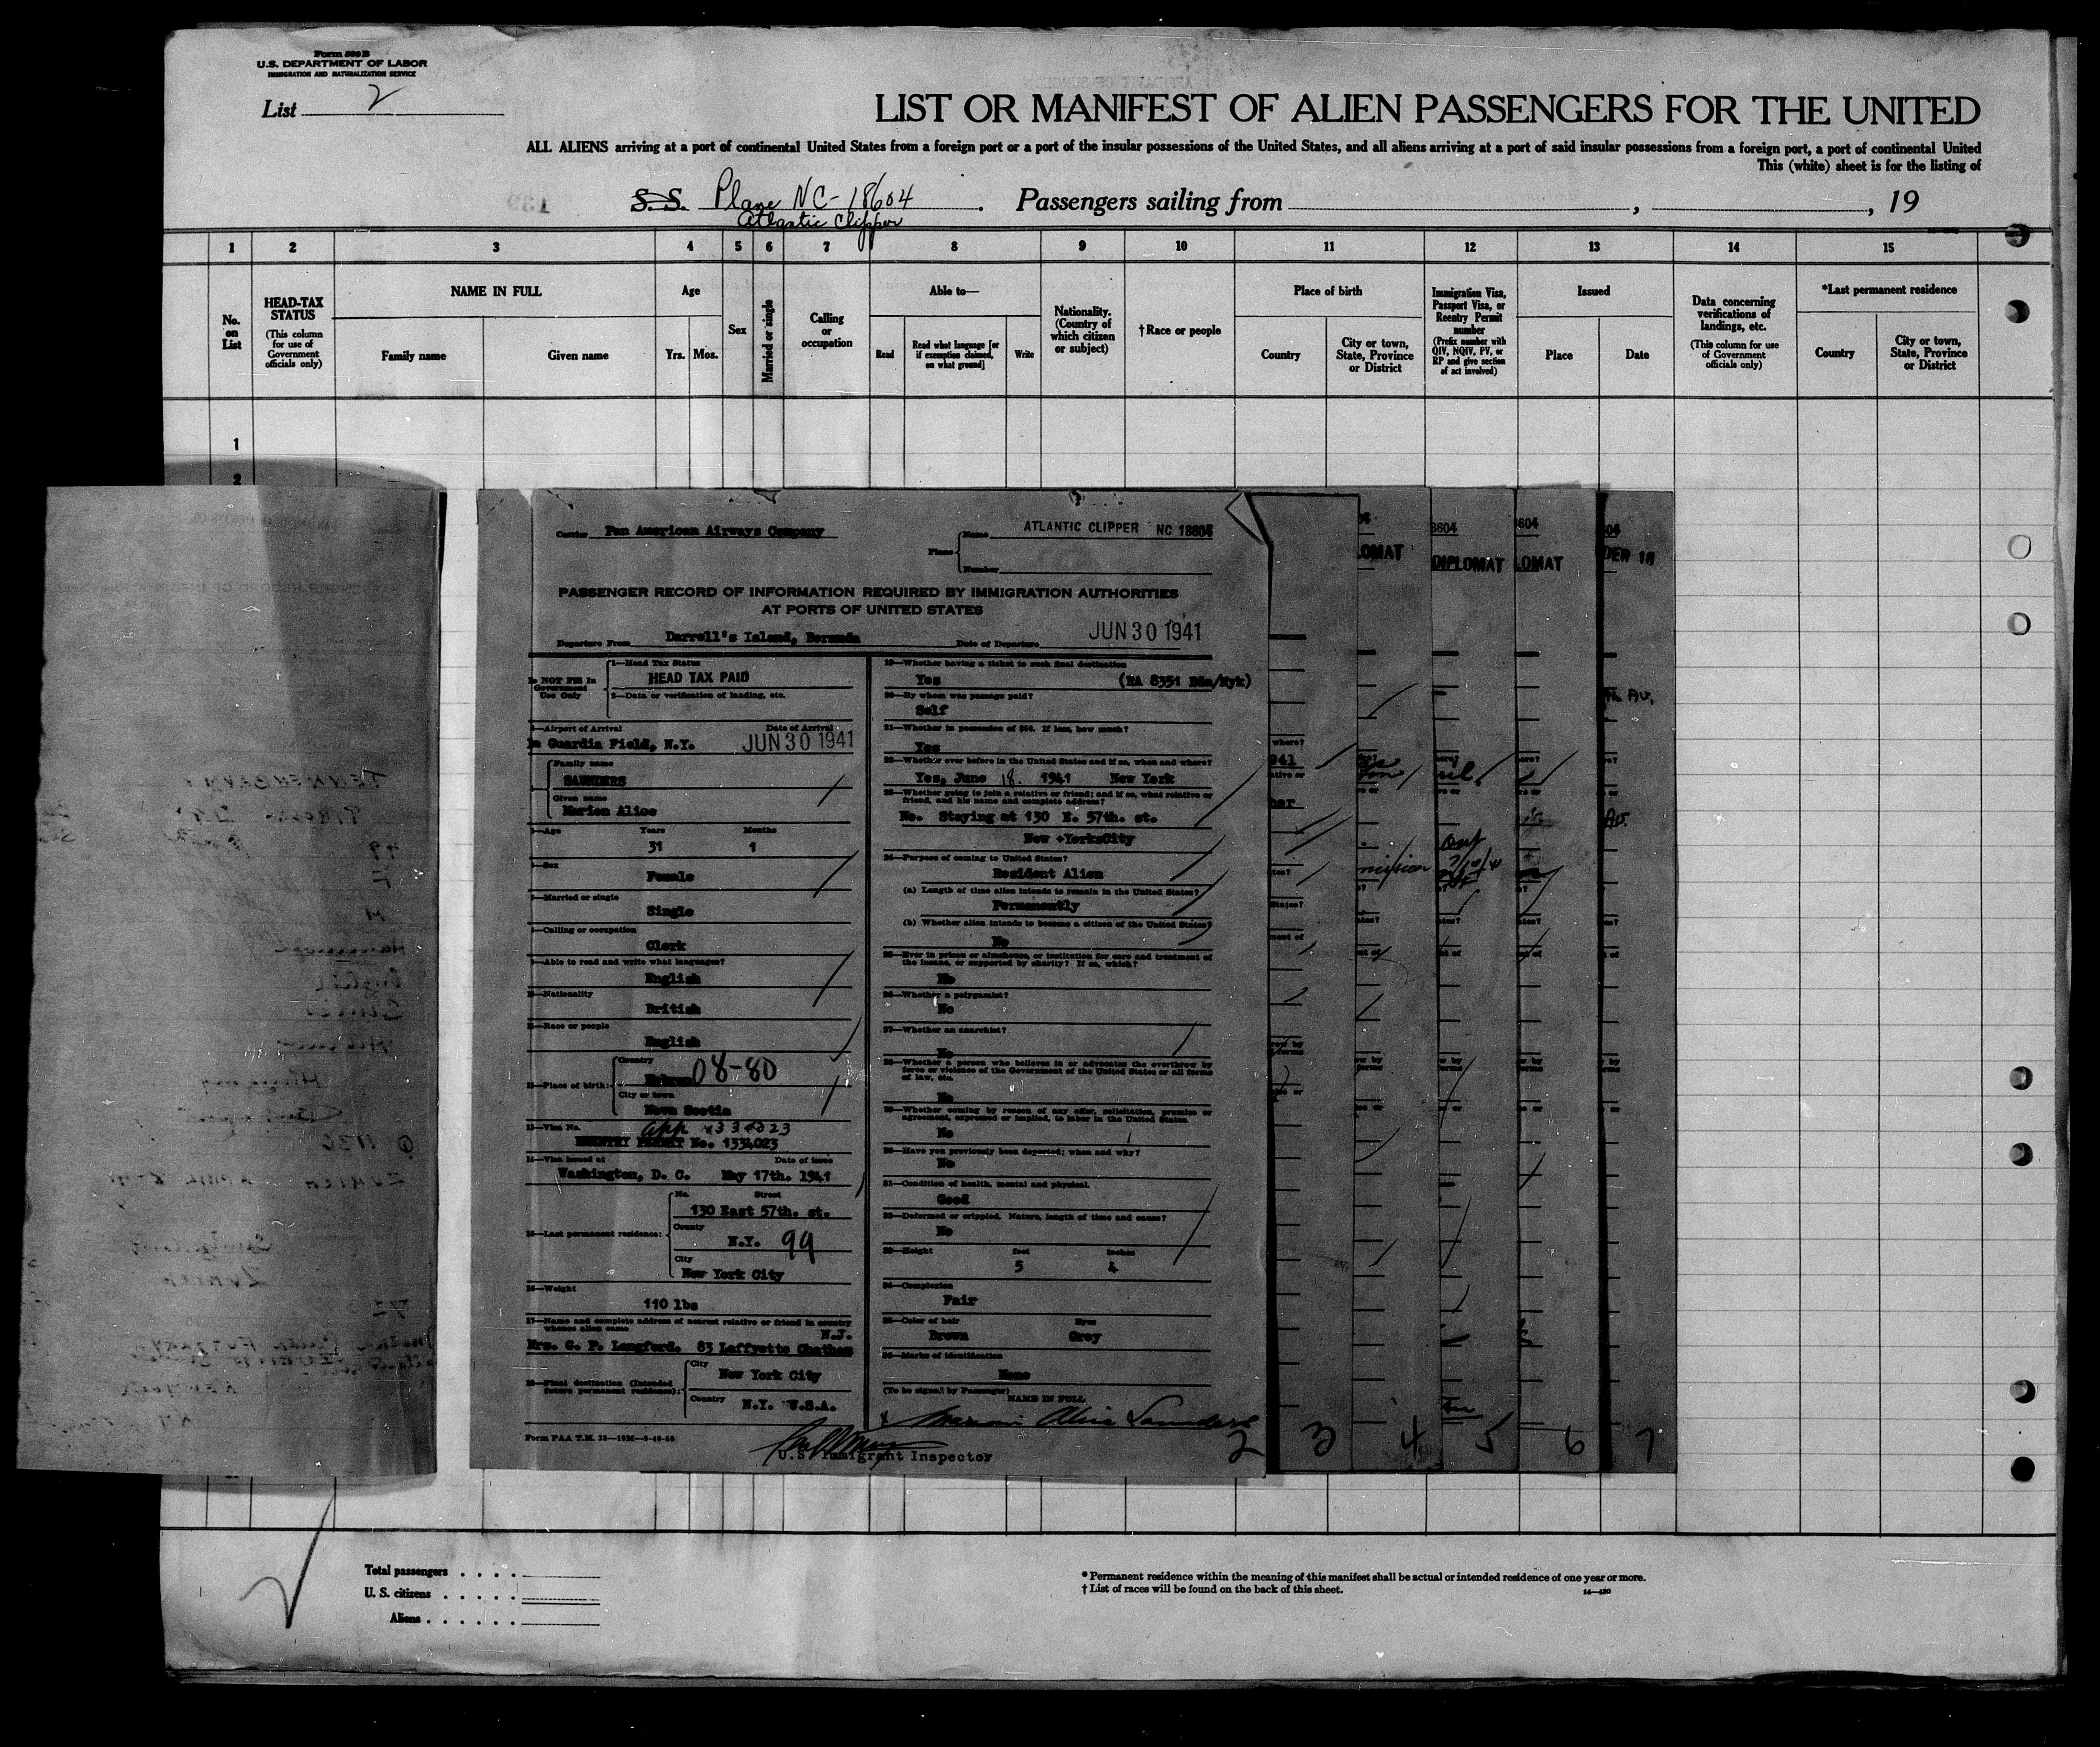 Form 500 B
U.S. DEPARTMENT OF LABOR
IMMIGRATION AND NATURALIZATION SERVICE
List 2
LIST OR MANIFEST OF ALIEN PASSENGERS FOR THE UNITED
ALL ALIENS arriving at a port of continental United States from a foreign port or a port of the insular possessions of the United States, and all aliens arriving at a port of said insular possessions from a foreign port, a port of continental United
This (white) sheet is for the listing of
S.S. Plane NC-18604 . Passengers sailing from , , 19
Atlantic Clipper
1 2 3 4 5 6 7 8 9 10 11 12 13 14 15
No. on List
HEAD-TAX STATUS
(This column for use of Government officials only)
NAME IN FULL
Family name Given name
Age
Yrs. Mos.
Sex
Married or single
Calling or occupation
Able to—
Read
Read what language [or if exemption claimed, on what ground]
Write
Nationality. (Country of which citizen or subject)
†Race or people
Place of birth
Country
City or town, State, Province or District
Immigration Visa, Passport Visa, or Reentry Permit number
(Prefix number with QIV, NQIV, PV, or RP and give section of act involved)
Issued
Place Date
Data concerning verifications of landings, etc.
(This column for use of Government officials only)
*Last permanent residence
Country
City or town, State, Province or District
1
2
Carrier Pan American Airways Company
Plane
Name ATLANTIC CLIPPER NC 18604
Number
PASSENGER RECORD OF INFORMATION REQUIRED BY IMMIGRATION AUTHORITIES
AT PORTS OF UNITED STATES
Departure From Darrell's Island, Bermuda Date of Departure JUN 30 1941
Do NOT Fill In Government Use Only
1—Head Tax Status
HEAD TAX PAID
2—Data or verification of landing, etc.
3—Airport of Arrival Date of Arrival
La Guardia Field, N.Y. JUN 30 1941
Family name
SAUNDERS
Given name
Marion Alice
5—Age Years Months
31 1
6—Sex
Female
7—Married or single
Single
8—Calling or occupation
Clerk
9—Able to read and write what languages?
English
10—Nationality
British
11—Race or people
English
12—Place of birth:
Country
08-80
City or town
Nova Scotia
13—Visa No.
REENTRY PERMIT No. 1334023
14—Visa issued at Date of Issue
Washington, D. C. May 17th. 1941
15—Last permanent residence:
No. Street
130 East 57th. st.
County
N.Y. 99
City
New York City
16—Weight
110 lbs
17—Name and complete address of nearest relative or friend in country whence alien came
N.J.
Mrs. G. P. Longford. 83 Laffyette Chatham
18—Final destination (Intended future permanent residence):
City
New York City
Country
N.Y. U.S.A.
Form PAA T.M.
U.S. Immigrant Inspector
19—Whether having a ticket to such final destination
Yes (RA 8351 Bda/Nyk)
20—By whom was passage paid?
Self
21—Whether in possession of $50. If less, how much?
Yes
22—Whether ever before in the United States and if so, when and where?
Yes, June 18. 1941 New York
23—Whether going to join a relative or friend; and if so, what relative or friend, and his name and complete address?
No. Staying at 130 E. 57th. st.
New YorkCity
24—Purpose of coming to United States?
Resident Alien
(a) Length of time alien intends to remain in the United States?
Permanently
(b) Whether alien intends to become a citizen of the United States?
No
25—Ever in prison or almshouse, or institution for care and treatment of the insane, or supported by charity? If so, which?
No
26—Whether a polygamist?
No
27—Whether an anarchist?
No
28—Whether a person who believes in or advocates the overthrow by force or violence of the Government of the United States or all forms of law, etc.
No
29—Whether coming by reason of any offer, solicitation, promise or agreement, expressed or implied, to labor in the United States.
No
30—Have you previously been deported; when and why?
No
31—Condition of health, mental and physical.
Good
32—Deformed or crippled. Nature, length of time and cause?
No
33—Height feet inches
5 4
34—Complexion
Fair
35—Color of hair Eyes
Brown Grey
36—Marks of identification
None
(To be signed by Passenger)
NAME IN FULL
Marion Alice Saunders
8604
DIPLOMAT
LOMAT
2 3 4 5 6 7
Total passengers
U. S. citizens
Aliens
* Permanent residence within the meaning of this manifest shall be actual or intended residence of one year or more.
† List of races will be found on the back of this sheet.